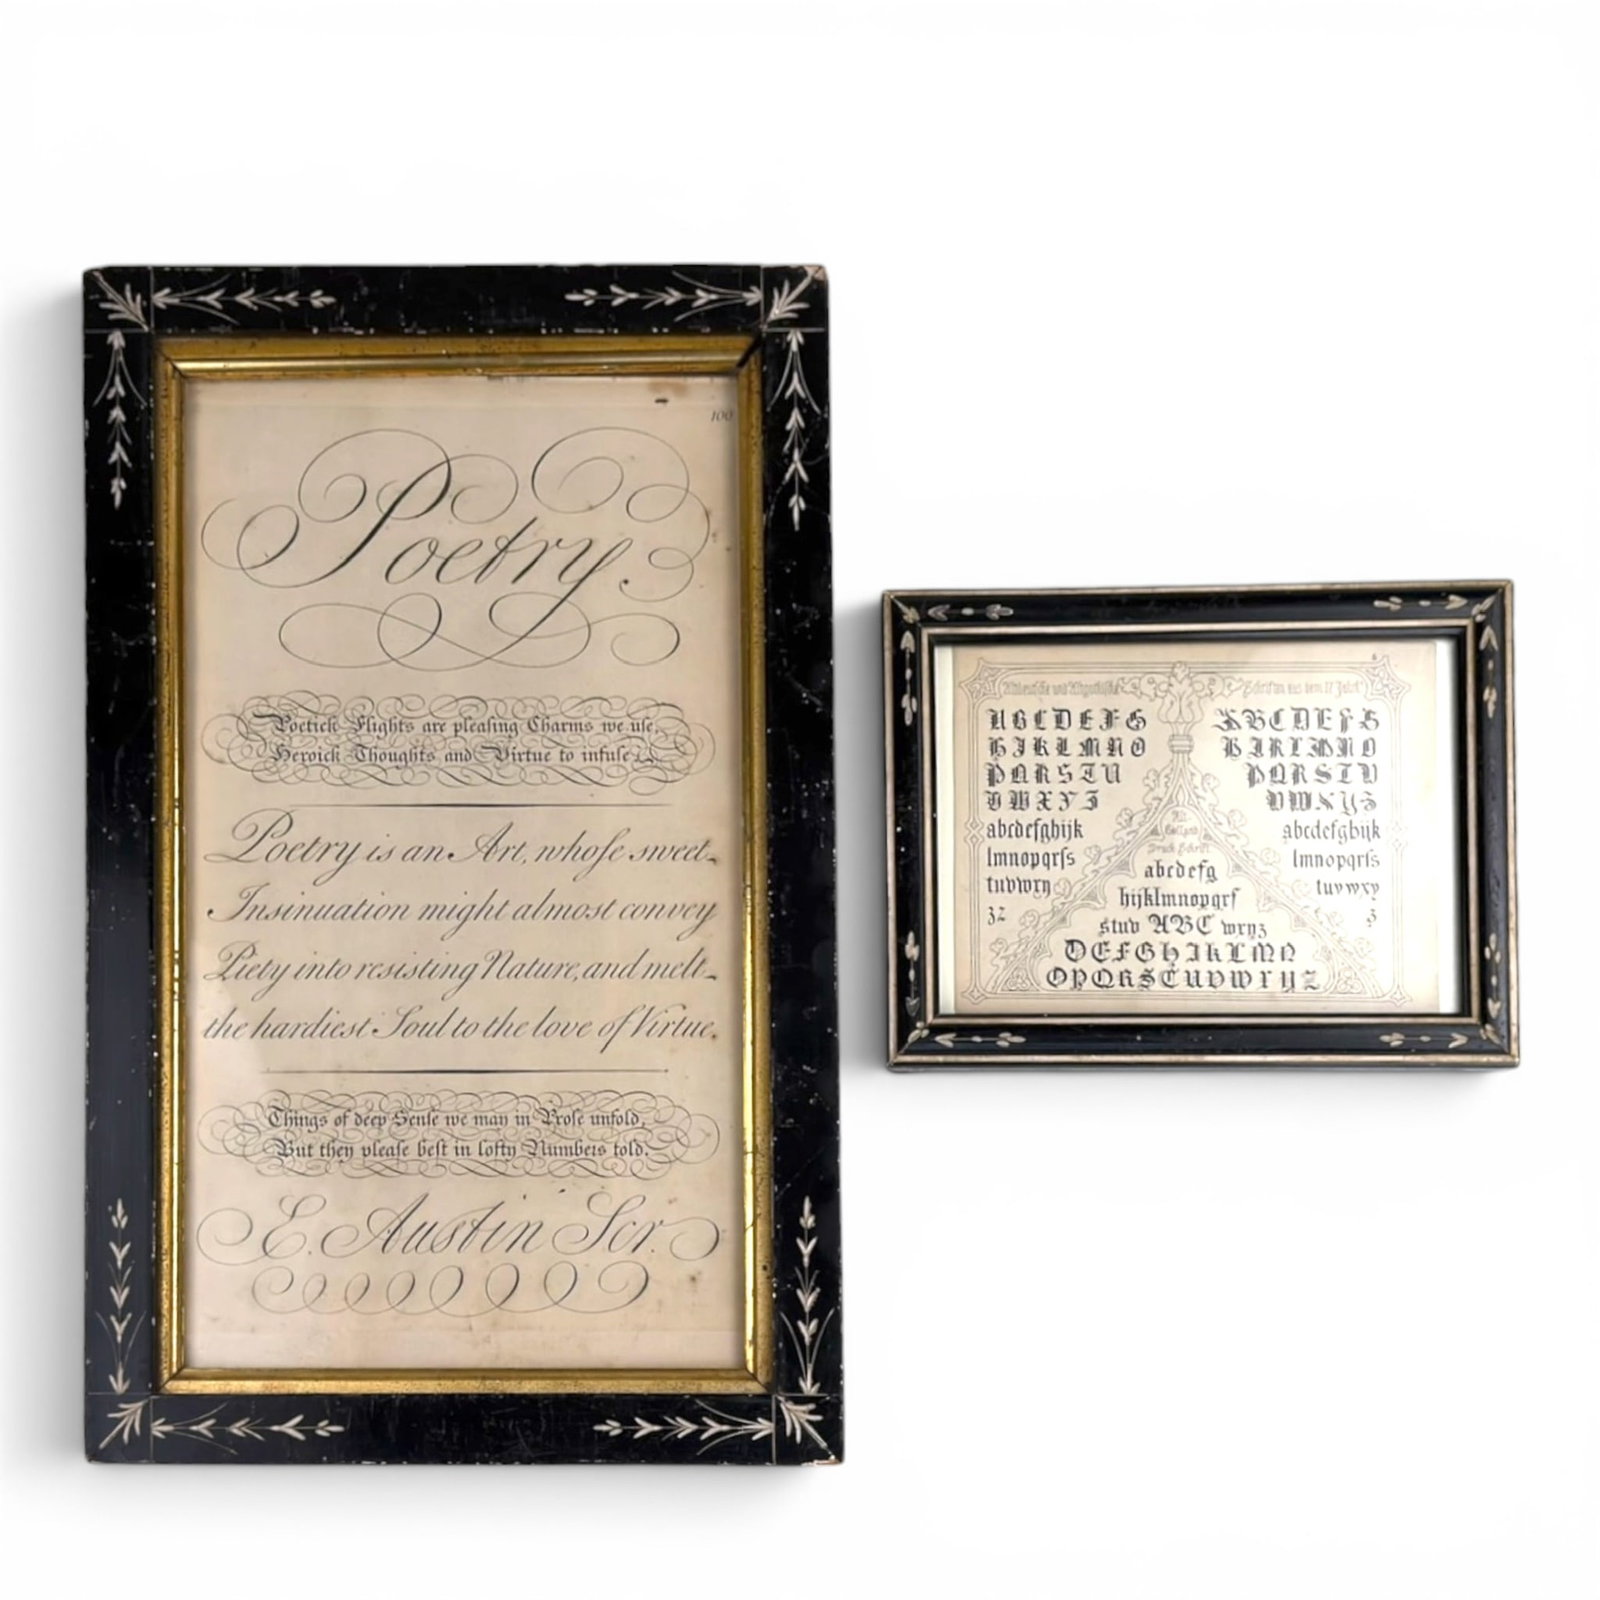 100
Poetry.
Poetick Flights are pleaſing Charms we uſe,
Heroick Thoughts and Virtue to infuſe
Poetry is an Art, whoſe sweet
Insinuation might almost convey
Piety into resisting Nature, and melt
the hardiest Soul to the love of Virtue.
Things of deep Senſe we may in Proſe unfold,
But they pleaſe beſt in lofty Numbers told.
E. Austin Scr.
6
Altdeutsche und Altgothische
Schriften aus dem 17 Jahrh
A B C D E F G
H J K L M N O
P Q R S T U
V W X Y Z
abcdefghijk
lmnopqrſs
tuvwxy
A B C D E F G
H J K L M N O
P Q R S T U
V W X Y Z
abcdefghijk
lmnopqrſs
tuvwxy
z
Alt
Holländ
Druck Schrift
abcdefg
hijklmnopqrſ
stuv ABC wxyz
DEFGHJKLMN
OPQRSTUVWXYZ